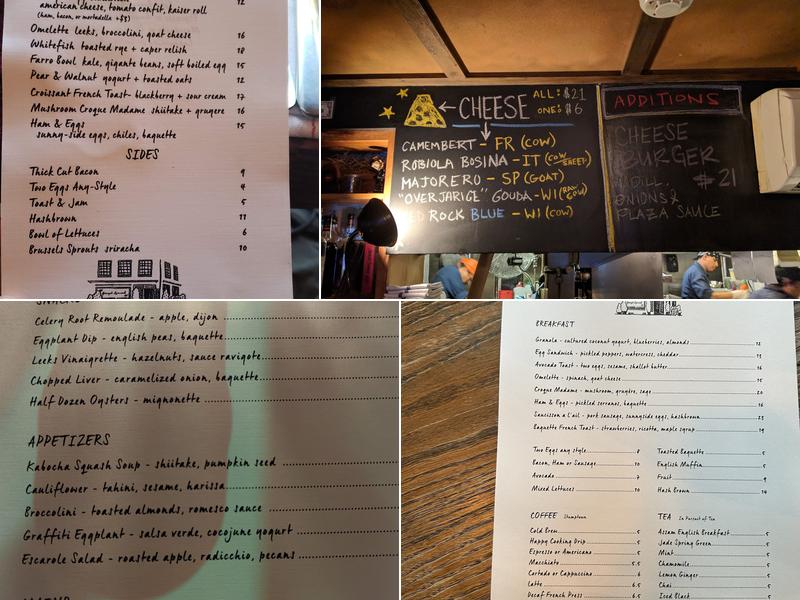 american cheese, tomato confit, kaiser roll
(ham, bacon, or mortadella +$3)
Omelette leeks, broccolini, goat cheese 16
Whitefish toasted rye + caper relish 18
Farro Bowl kale, gigante beans, soft boiled egg 15
Pear & Walnut yogurt + toasted oats 12
Croissant French Toast- blackberry + sour cream 17
Mushroom Croque Madame shiitake + gruyere 16
Ham & Eggs 15
sunny-side eggs, chiles, baguette
SIDES
Thick Cut Bacon 9
Two Eggs Any-Style 4
Toast & Jam 5
Hashbrown 11
Bowl of Lettuces 6
Brussels Sprouts sriracha 10
CHEESE ALL: $21
ONE: $6
CAMEMBERT - FR (COW)
ROBIOLA BOSINA - IT (COW SHEEP)
MAJORERO - SP (GOAT)
"OVERJARIGE" GOUDA - WI (RAW COW)
RED ROCK BLUE - WI (COW)
ADDITIONS
CHEESE
BURGER
DILL, $21
ONIONS &
PLAZA SAUCE
Celery Root Remoulade - apple, dijon
Eggplant Dip - english peas, baguette
Leeks Vinaigrette - hazelnuts, sauce ravigote
Chopped Liver - caramelized onion, baguette
Half Dozen Oysters - mignonette
APPETIZERS
Kabocha Squash Soup - shiitake, pumpkin seed
Cauliflower - tahini, sesame, harissa
Broccolini - toasted almonds, romesco sauce
Graffiti Eggplant - salsa verde, cocojune yogurt
Escarole Salad - roasted apple, radicchio, pecans
BREAKFAST
Granola - cultured coconut yogurt, blueberries, almonds
Egg Sandwich - pickled peppers, watercress, cheddar
Avocado Toast - two eggs, sesame, shallot butter 16
Omelette - spinach, goat cheese 15
Croque Madame - mushroom, gruyère, sage 20
Ham & Eggs - pickled serranos, baguette 16
Saucisson a L'ail - pork sausage, sunnyside eggs, hashbrown
Baguette French Toast - strawberries, ricotta, maple syrup 19
Two Eggs any style 8
Bacon, Ham or Sausage 10
Avocado 7
Mixed Lettuces 10
Toasted Baguette 5
English Muffin 5
Fruit 9
Hash Brown 14
COFFEE Stumptown
Cold Brew 5
Happy Cooking Drip 5
Espresso or Americano 5
Macchiato 5.5
Cortado or Cappuccino 6
Latte 6.5
Decaf French Press 6.5
TEA In Pursuit of Tea
Assam English Breakfast 5
Jade Spring Green 5
Mint 5
Chamomile 5
Lemon Ginger 5
Chai 5
Iced Black 5